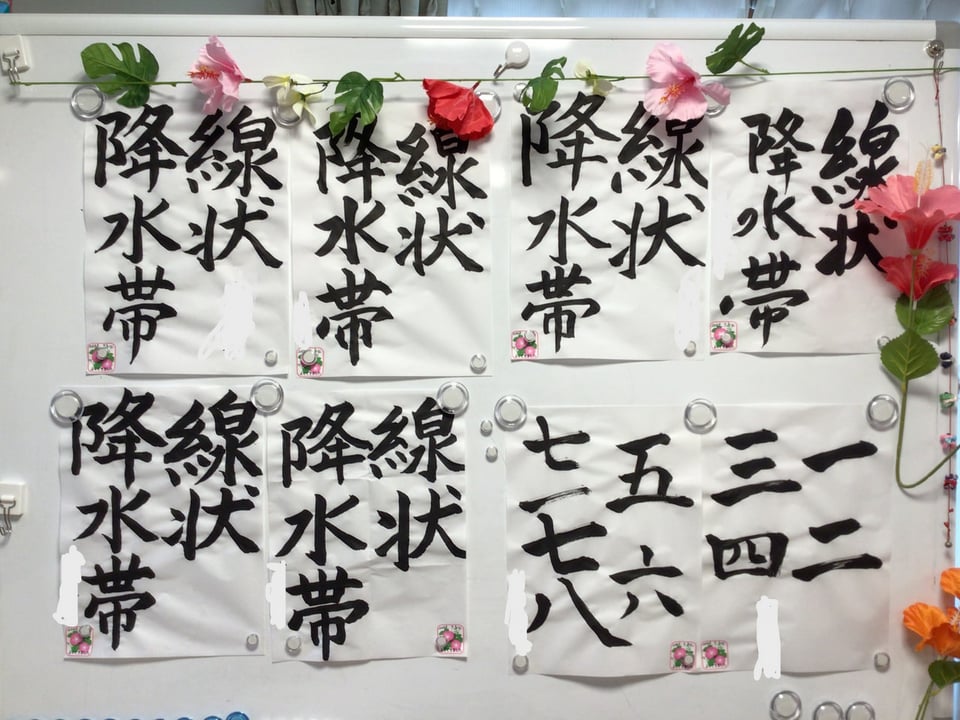 線状
降水帯
線状
降水帯
線状
降水帯
線状
降水帯
線状
降水帯
線状
降水帯
一二
三四
五六
七一七八